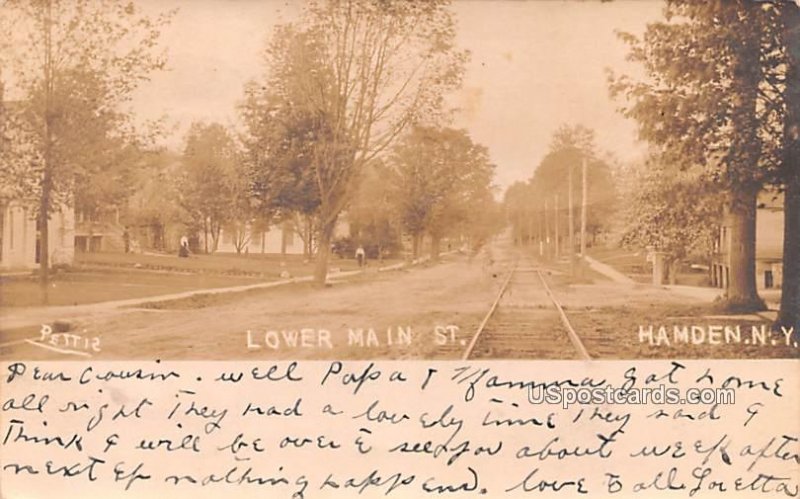 USpostcards.com
PETTIS
LOWER MAIN ST.
HAMDEN N.Y.
Dear Cousin. well Papa & Mamma Got home
all right They had a lovely Time They said I
USpostcards.com
Think I will be over to see for about week after
next if nothing happens. love to all Loretta